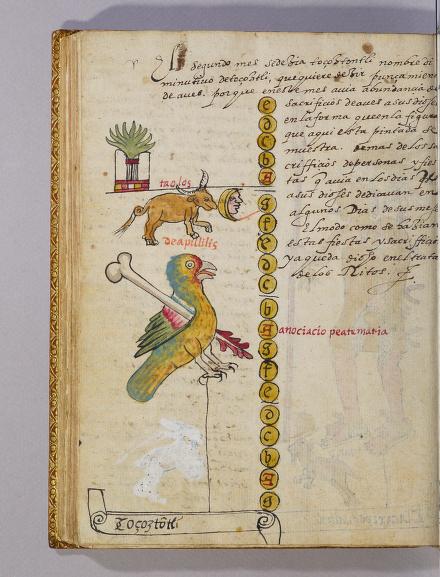 El segundo mes sedezia toçoztontli nombre di
minutivo de toçoztli, que quiere dezir punçamien
de aves. porque en este mes avia abundancia de
sacrificios de aves a sus dios
en la forma que en la figura
que aqui esta pintada se
muestra. demas de los sa
crifficios de personas y fies
tas q avia en los dias
a sus dioses dedicavan en
algunos Dias de sus mes
El modo como se hazian
estas fiestas y sacrifficio
ya queda dicho en el trata
de los Ritos.
e
d
c
b
A
g
f
e
d
c
b
A
g
f
e
d
c
b
A
g
taolos
deapillilis
anociacio peatamatia
Toçoztõtli